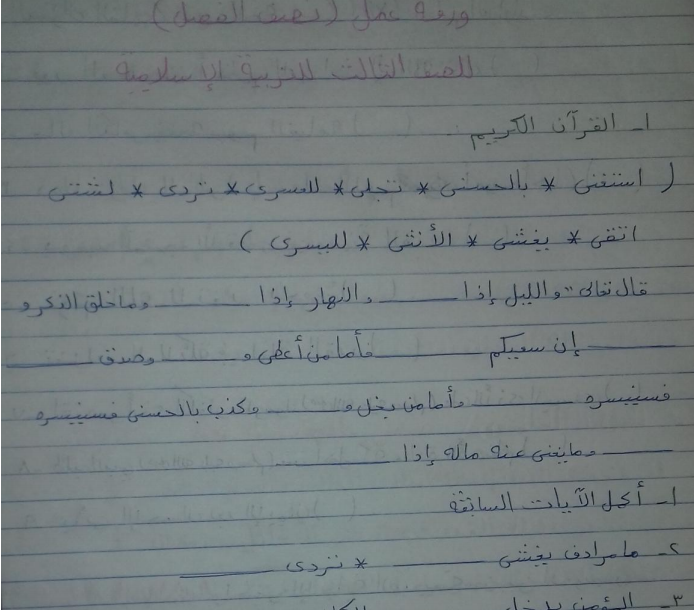 ورقة عمل (نصف الفصل)
للصف الثالث للتربية الإسلامية
١- القرآن الكريم
( استغنى * بالحسنى * تجلى * للعسرى * تردى * لشتى
اتقى * يغشى * الأنثى * لليسرى )
قال تعالى "والليل إذا ______ والنهار إذا ______ وما خلق الذكر و
______ إن سعيكم ______ فأما من أعطى و ______ وصدق ______
فسنيسره ______ وأما من بخل و ______ وكذب بالحسنى فسنيسره
______ وما يغني عنه ماله إذا ______
١- أكمل الآيات السابقة
٢- ما مرادف يغشى ______ * تردى ______
٣-